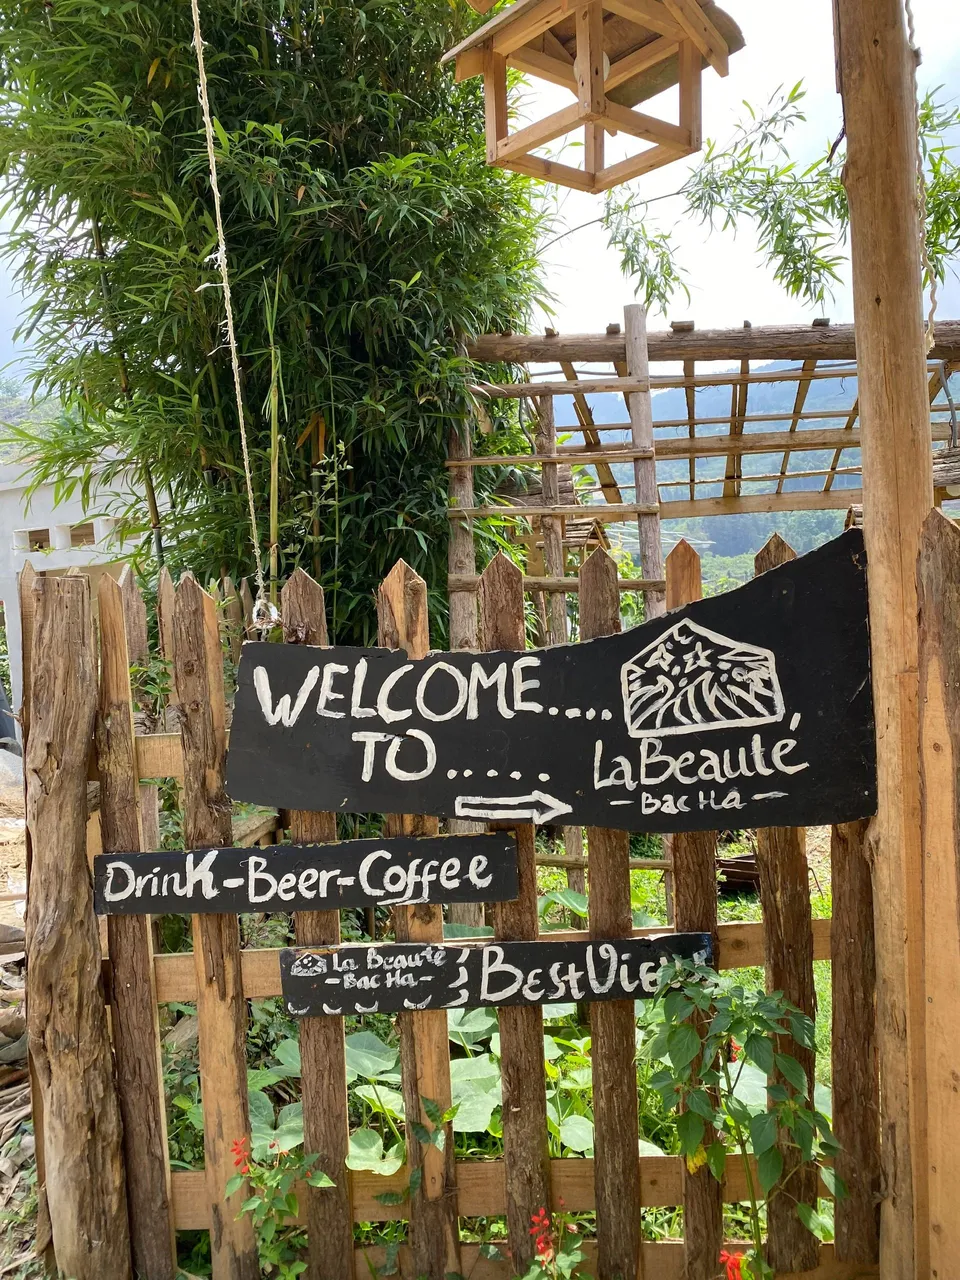 WELCOME.....
TO......
La Beauté
- Bac Hà -
DrinK-Beer-Coffee
La Beauté
- Bac Ha -
Best View